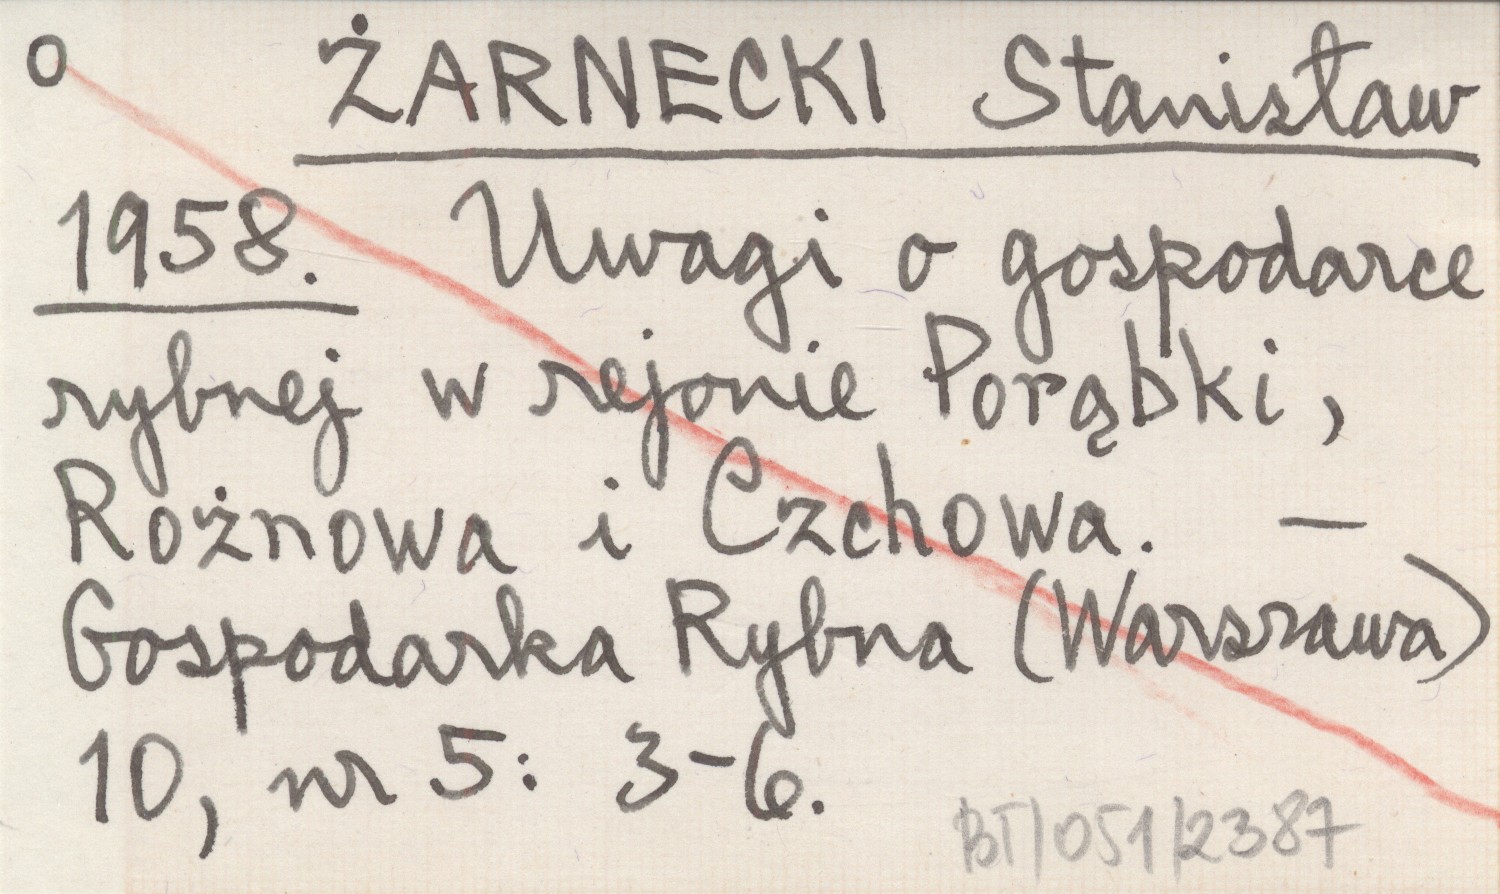 o ŻARNECKI Stanisław
1958. Uwagi o gospodarce
rybnej w rejonie Porąbki,
Rożnowa i Czchowa. —
Gospodarka Rybna (Warszawa)
10, nr 5: 3-6.
BT/051/2387